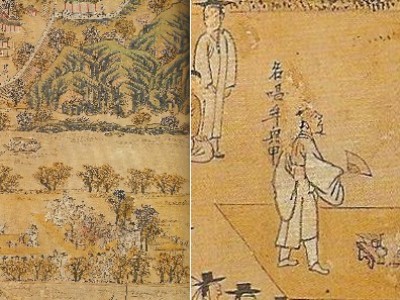 名唱牟興甲